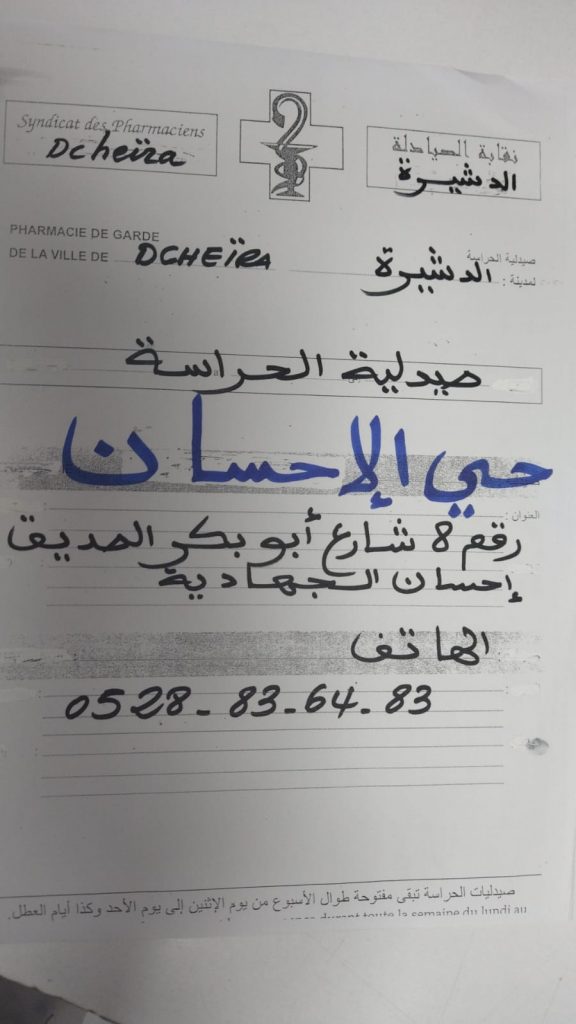 Syndicat des Pharmaciens
Dcheïra
نقابة الصيادلة
الدشيرة
PHARMACIE DE GARDE
DE LA VILLE DE DCHEÏRA
صيدلية الحراسة
لمدينة : الدشيرة
صيدلية الحراسة
حي الإحسان
العنوان :
رقم 8 شارع أبو بكر الصديق
إحسان الجهادية
الهاتف
0528-83-64-83
صيدليات الحراسة تبقى مفتوحة طوال الأسبوع من يوم الإثنين إلى يوم الأحد وكذا أيام العطل.
durant toute la semaine du lundi au